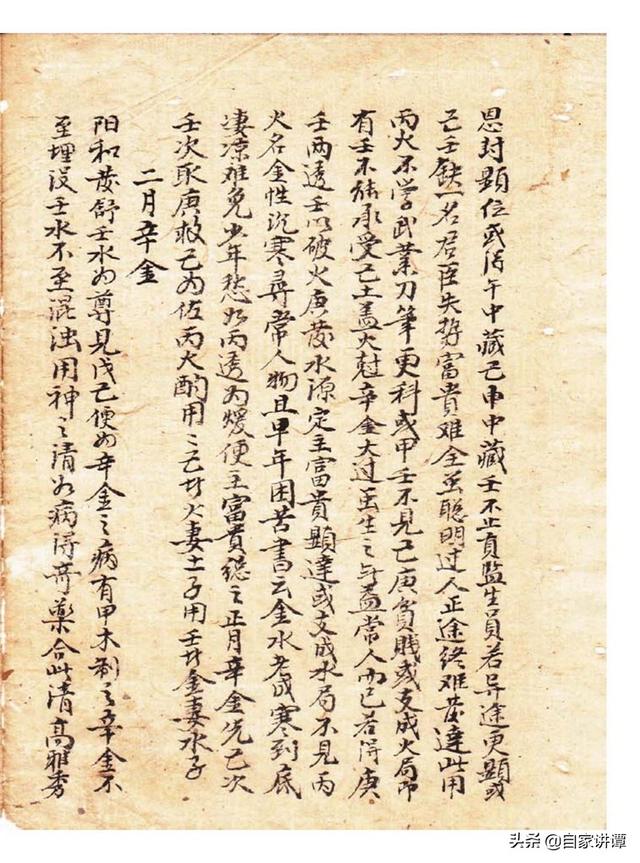 恩封顕位或活午中藏己申中藏壬不止貢監生員若异途更顕或
己壬缺一名君臣失勢富貴难全虽聪明过人正途终难發達此用
丙火不学武業刀筆更科或甲壬不見己庚貧賎或支成火局即
有壬不能承受己土盖火尅辛金太过虽生之无益常人而已若得庚
壬两透壬以破火庚發水源定主富貴顕達或支成水局不見丙
火名金性沉寒尋常人物且早年困苦書云金水老成寒到底
凄凉难免少年愁如丙透為煖便主富貴緫之正月辛金先己次
壬次取庚救己為佐丙火酌用之己廿火妻土子用壬廿金妻水子
二月辛金
阳和發舒壬水為尊見戊己便如辛金之病有甲木制之辛金不
至埋没壬水不至混浊用神之清如病得奇藥合此清高雅秀
头条 @自家讲谭